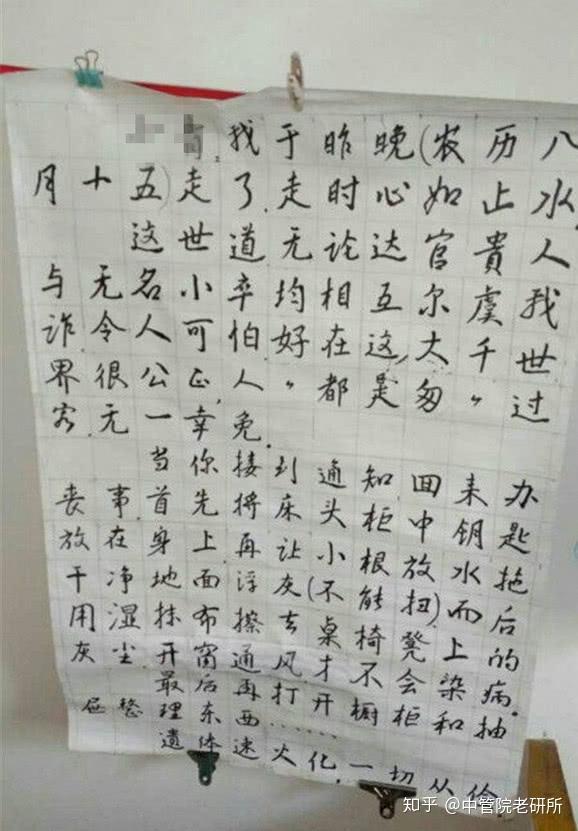 我于昨晚(农历八
月十五)走了.走时心如止水.
这世道无论达官貴人
与无名小卒均相互尔虞我
诈.令人可怕.好在这大千世
界很公正,人〃都是匆〃过
客.无一幸免.
当你接到通知回来办
丧事首先将床头柜中钥匙
放在身上再让小根放水拖
干净地面浮灰(不能扭)而后
用湿抹布擦去桌椅凳上的
灰尘.开窗通风才不会染病.
最后再打开橱柜和抽
屉整理东西......
遗体速火化.一切从俭
知乎 @中管院老研所